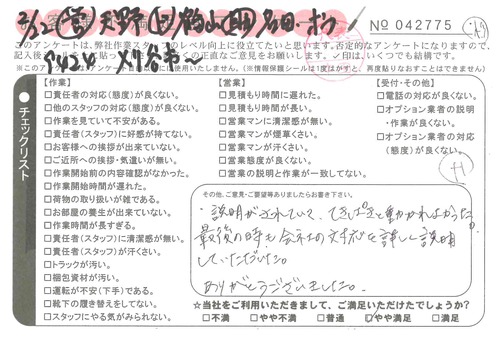 3/22
No 042775
このアンケートは、弊社作業スタッフのレベル向上に役立てたいと思います。否定的なアンケートになりますので、
の正直なご意見をお願いします。✓印は、いくつでも結構です。
(※情報保護シールは1度はがすと、再度貼りなおすことはできません)
チェックリスト
【作業】
□責任者の対応(態度)が良くない。
□他のスタッフの対応(態度)が良くない。
□作業を見ていて不安がある。
□責任者(スタッフ)に好感が持てない。
□お客様への挨拶が出来ていない。
□ご近所への挨拶・気遣いが無い。
□作業開始前の内容確認がなかった。
□作業開始時間が遅れた。
□荷物の取り扱いが雑である。
□お部屋の養生が出来ていない。
□作業時間が長すぎる。
□責任者(スタッフ)に清潔感が無い。
□責任者(スタッフ)が汗くさい。
□トラックが汚い。
□梱包資材が汚い。
□運転が不安(下手)である。
□靴下の履き替えをしてない。
□スタッフにやる気がみられない。
【営業】
□見積もり時間に遅れた。
□見積もり時間が長い。
□営業マンに清潔感が無い。
□営業マンが煙草くさい。
□営業マンが汗くさい。
□営業態度が良くない。
□営業の説明と作業が一致してない。
【受付・その他】
□電話の対応が良くない。
□オプション業者の説明
・作業が良くない。
□オプション業者の対応
(態度)が良くない。
その他、ご意見・ご要望等ありましたらお書き下さい。
・説明がされていく、てきぱきと動かれよかった
最後の時も会社の対応を詳しく説明
していただいた。
ありがとうございました。
☆当社をご利用いただきまして、ご満足いただけたでしょうか?
□不満 □やや不満 □普通 ☑やや満足 □満足